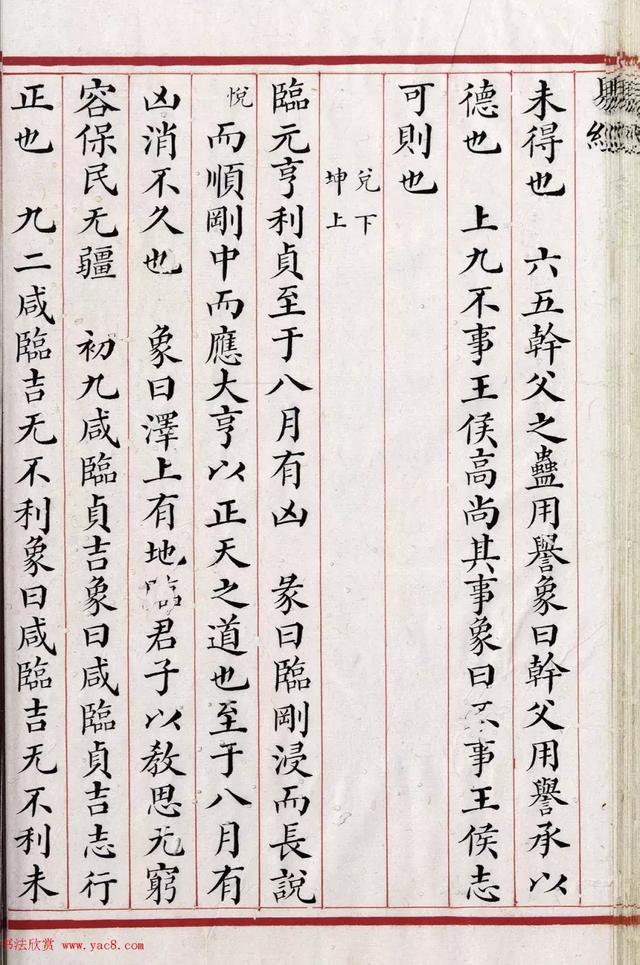 易經
未得也 六五幹父之蠱用譽象曰幹父用譽承以
德也 上九不事王侯高尚其事象曰不事王侯志
可則也
兌下
坤上
臨元亨利貞至于八月有凶 彖曰臨剛浸而長說
悅
而順剛中而應大亨以正天之道也至于八月有
凶消不久也 象曰澤上有地臨君子以教思无窮
容保民无疆 初九咸臨貞吉象曰咸臨貞吉志行
正也 九二咸臨吉无不利象曰咸臨吉无不利未
书法欣赏 www.yac8.com